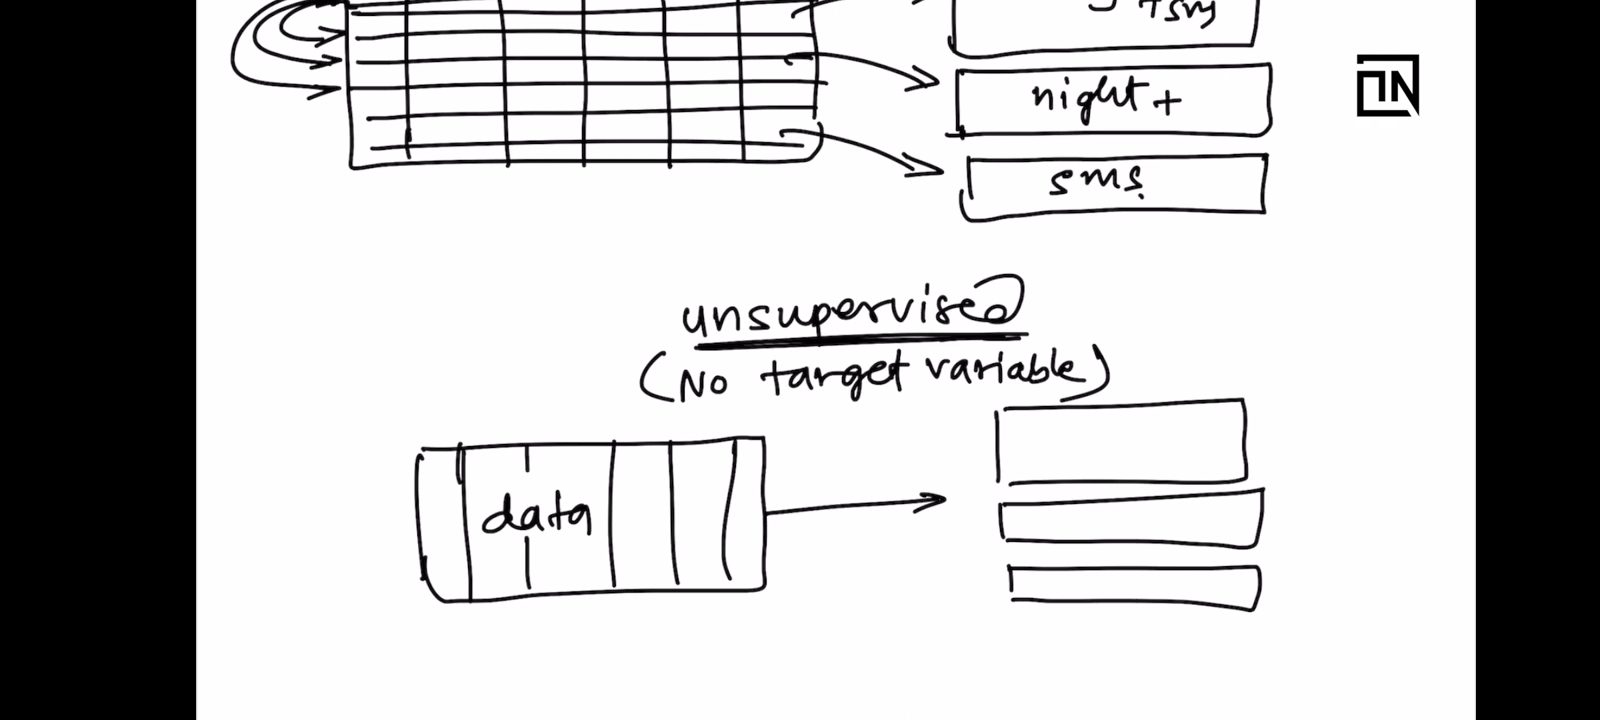 night +
sms
unsupervised
(No target variable)
data